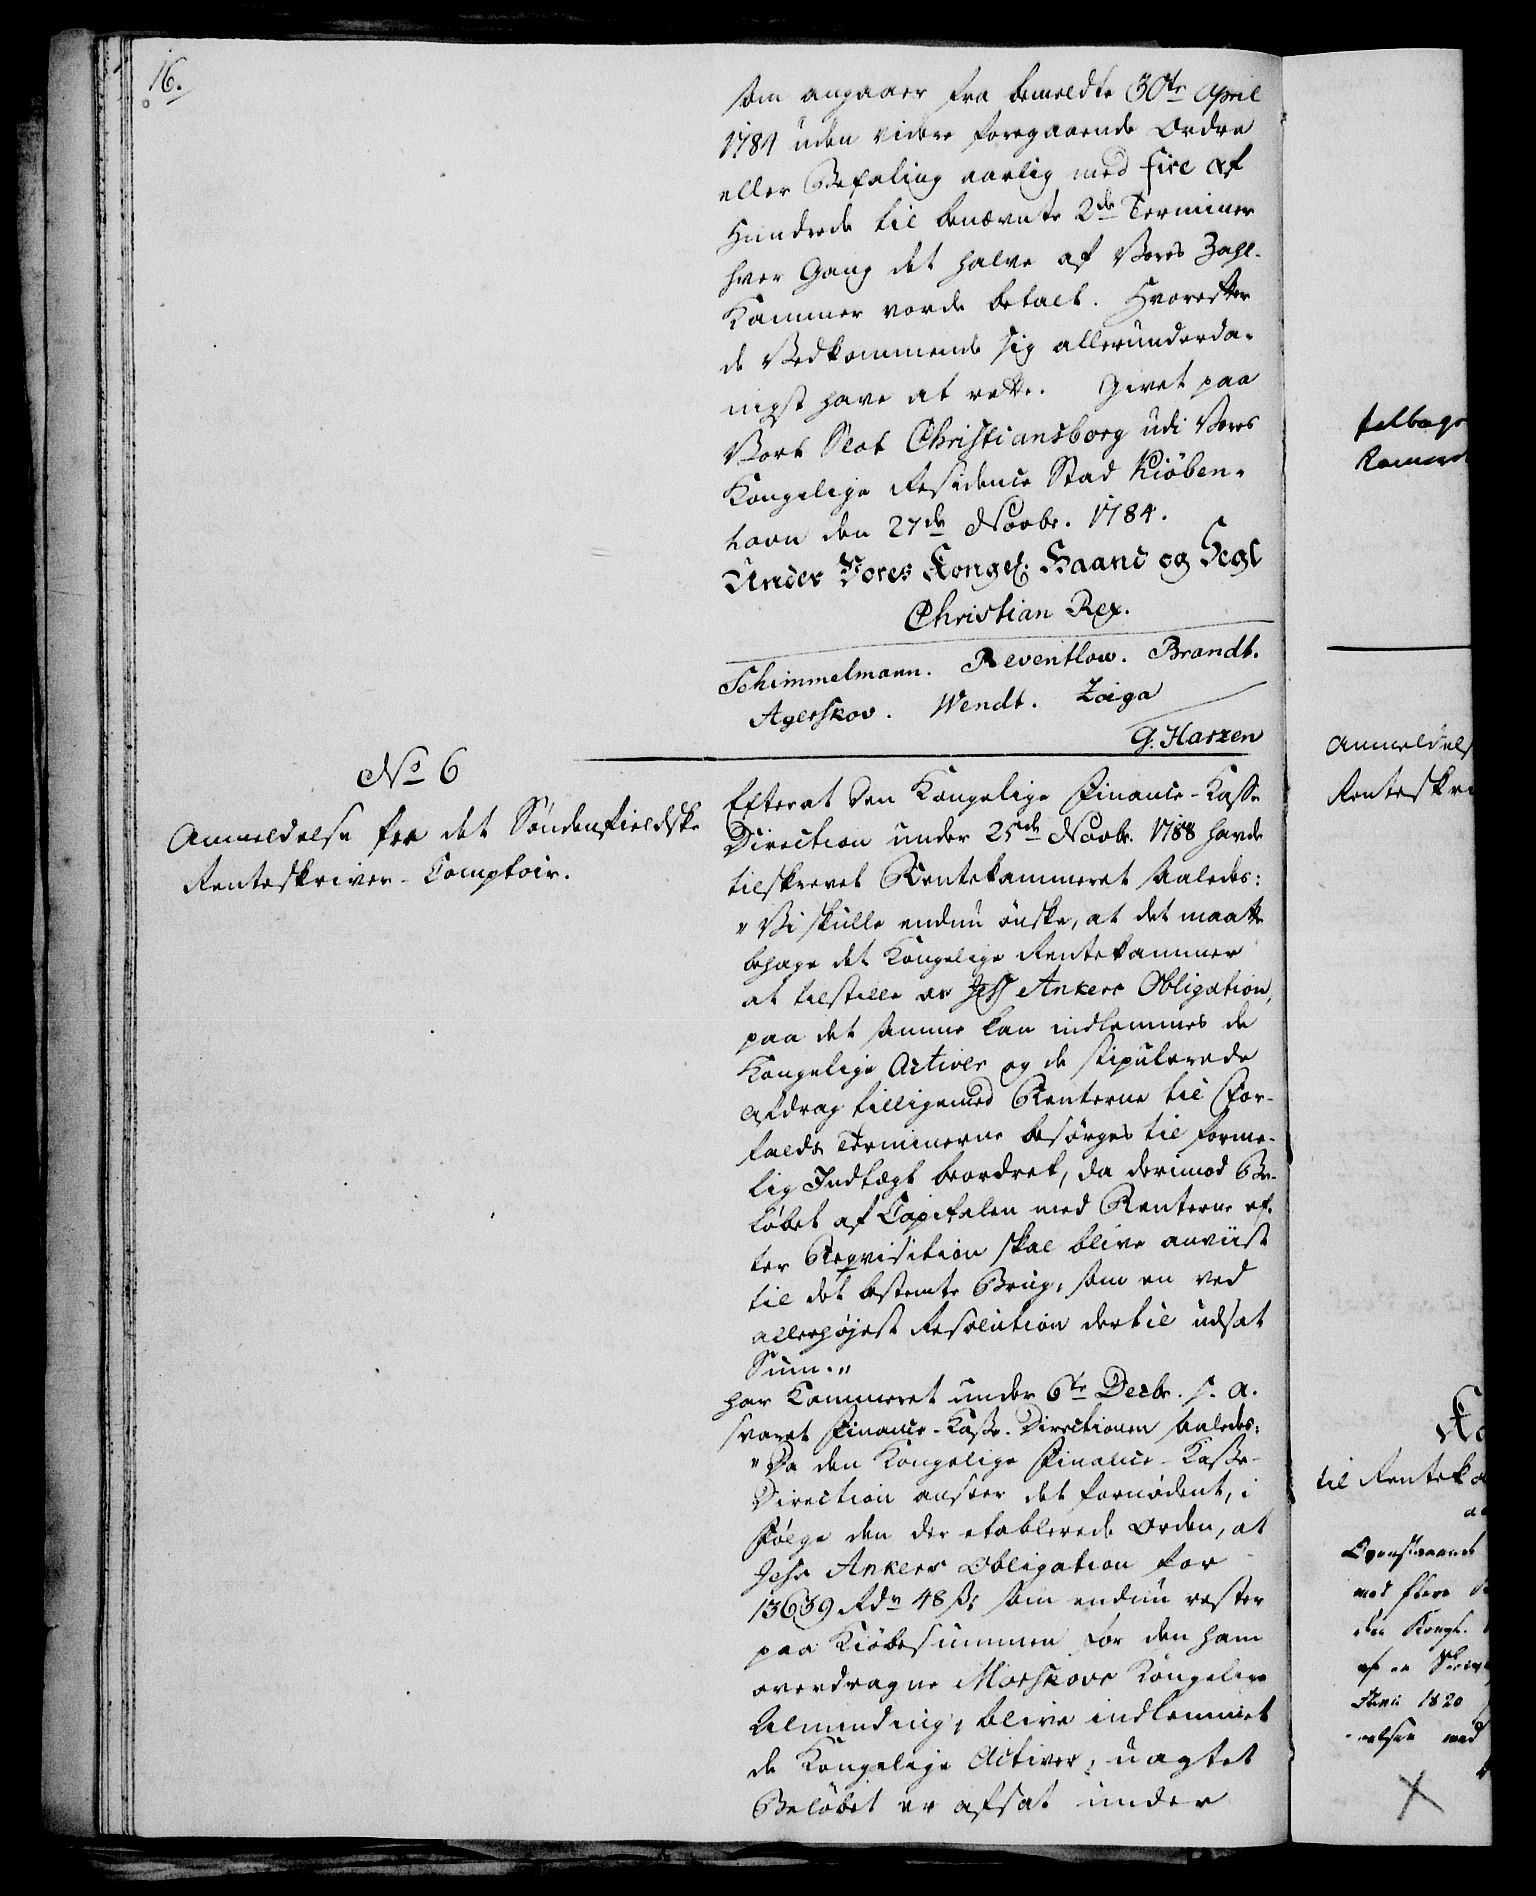 16.
som angaaer fra bemeldte 30te April
1784 uden videre foregaaende Ordre
eller Befaling aarlig med fire af
Hundrede til benævnte 2de Terminer
hver Gang det halve af Vores Zahl-
Kammer vorde betalt. Hvorefter
de Vedkommende sig allerunderda-
nigst have at rette. Givet paa
Vort Slot Christiansborg udi Vores
Kongelige Residence Stad Kiöben-
havn den 27de Novbr. 1784.
Under Vores Kongel: Haand og Segl
Christian Rex.
Schimmelmann. Reventlow. Brandt.
Agerskov. Wendt. Zoëga
G. Harzen
No 6
Anmeldelse fra det Söndenfieldske
Renteskriver-Comptoir.
Efterat den Kongelige Finance-Kasse
Direction under 25de Novbr. 1788 havde
tilskrevet Rentekammeret saaledes:
"Vi skulle endnu önske, at det maatte
behage det Kongelige Rentekammer
at tilstille os Jess Ankers Obligation,
paa det samme kan indlemmes de
Kongelige Activer og de stipulerede
Afdrag tilligemed Renterne til For-
falds Terminerne besörges til forme-
lig Indtægt beordret, da derimod Be-
löbet af Capitalen med Renterne ef-
ter Reqvisition skal blive anviist
til det bestemte Brug, som en ved
allerhöjest Resolution dertil udsat
Sum."
har Kammeret under 6te Decbr. s. a.
svaret Finance-Kasse-Directionen saaledes:
"Da den Kongelige Finance-Kasse-
Direction anseer det fornödent, i
Fölge den der etablerede Orden, at
Jess Ankers Obligation for
13639 Rdr 48 s, som endnu rester
paa Kiöbesummen for den ham
overdragne Morskovs Kongelige
Alminding, blive indlemmet
de Kongelige Activer, uagtet
Belöbet er afsat under
Anmeldels
Renteskri
til Renteka
Ovenstaaende
med flere
den Kongl.
af en
Juni 1820
med